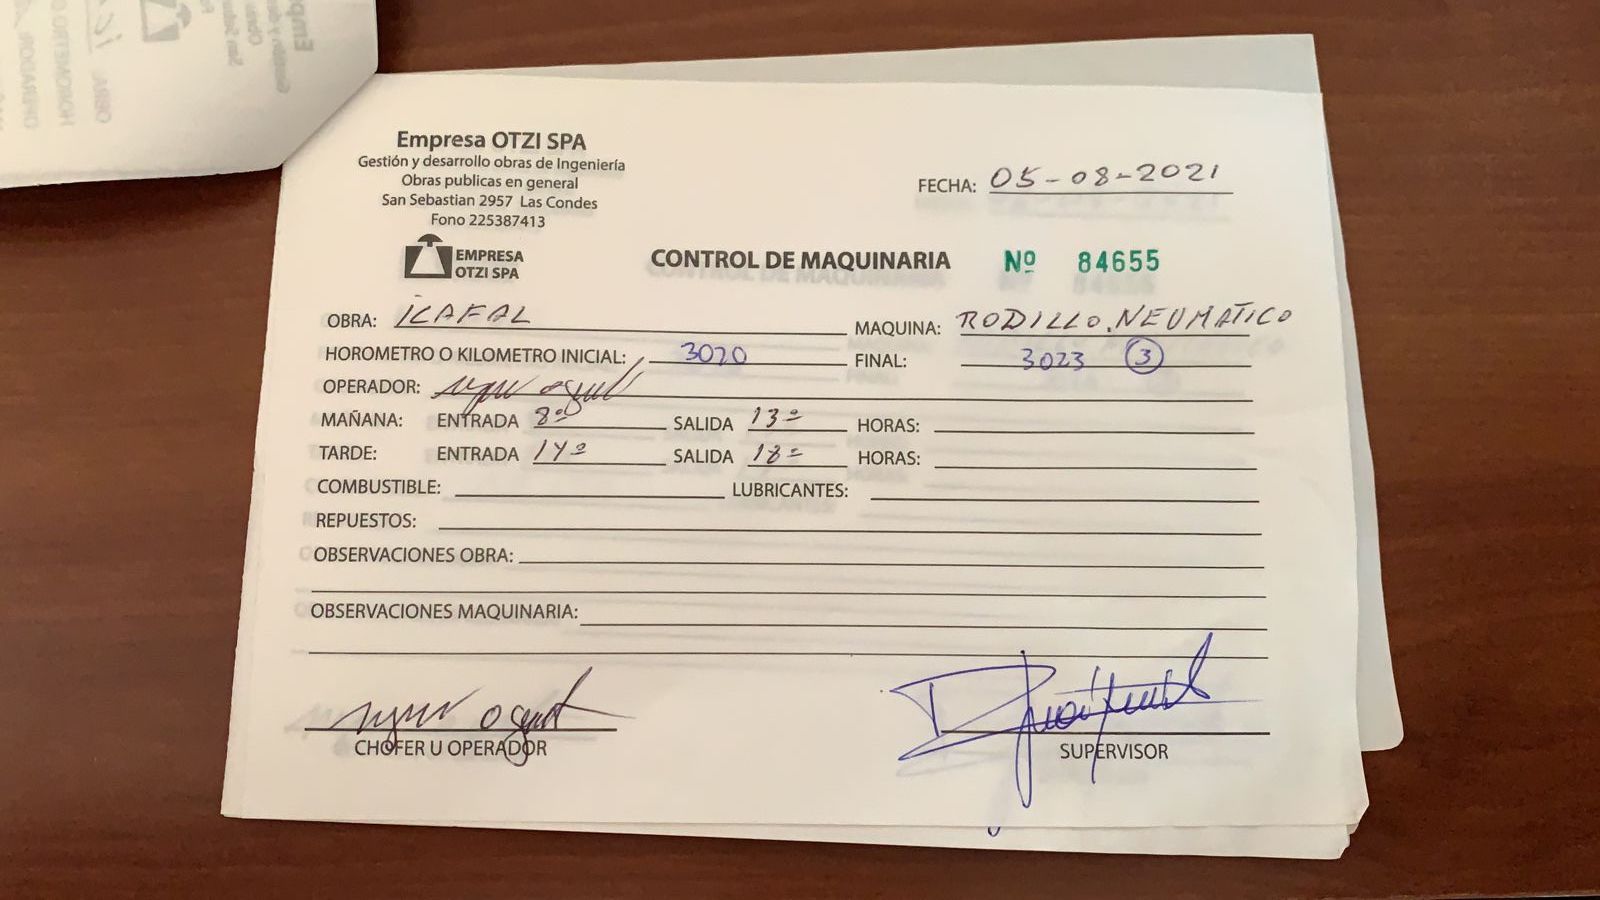 Empresa OTZI SPA
Gestión y desarrollo obras de Ingeniería
Obras publicas en general
San Sebastian 2957 Las Condes
Fono 225387413
FECHA: 05-08-2021
EMPRESA
OTZI SPA
CONTROL DE MAQUINARIA Nº 84655
OBRA: ICAFAL MAQUINA: RODILLO NEUMATICO
HOROMETRO O KILOMETRO INICIAL: 3020 FINAL: 3023 3
OPERADOR:
MAÑANA: ENTRADA 8º SALIDA 13º HORAS:
TARDE: ENTRADA 14º SALIDA 18º HORAS:
COMBUSTIBLE: LUBRICANTES:
REPUESTOS:
OBSERVACIONES OBRA:
OBSERVACIONES MAQUINARIA:
CHOFER U OPERADOR SUPERVISOR